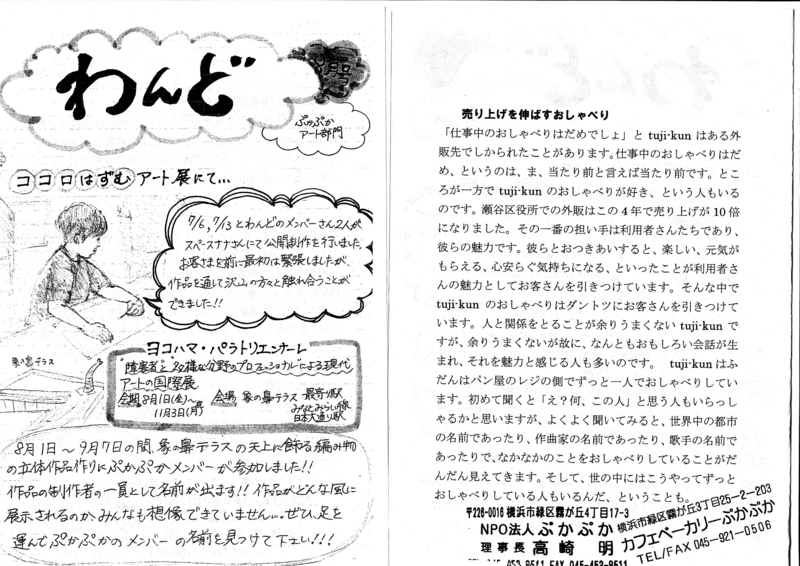 わんど
8月号
ぷかぷか
アート部門
ココロはずむアート展にて...
7/6, 7/13とわんどのメンバーさん2人が
スペースナナさんにて公開制作を行いました。
お客さまを前に最初は緊張しましたが、
作品を通して沢山の方々と触れ合うことが
できました!!
ヨコハマ・パラトリエンナーレ
"障害者"と"多様な分野のプロフェッショナル"による現代
アートの国際展
会期 8月1日(金)〜
11月3日(月)
会場 象の鼻テラス
最寄り駅
みなとみらい線
日本大通り駅
象の鼻テラス
8月1日〜9月7日の間、象の鼻テラスの天上に飾る編み物
の立体作品作りにぷかぷかメンバーが参加しました!!
作品の制作者の一員として名前が出ます!!作品がどんな風に
展示されるのか、みんなも想像できていません...ぜひ、足を
運んでぷかぷかのメンバーの名前を見つけて下さい!!!
売り上げを伸ばすおしゃべり
「仕事中のおしゃべりはだめでしょ」と tuji-kun はある外
販先でしかられたことがあります。仕事中のおしゃべりはだ
め、というのは、ま、当たり前と言えば当たり前です。とこ
ろが一方で tuji-kun のおしゃべりが好き、という人もいる
のです。瀬谷区役所での外販はこの4年で売り上げが 10 倍
になりました。その一番の担い手は利用者さんたちであり、
彼らの魅力です。彼らとおつきあいすると、楽しい、元気が
もらえる、心安らぐ気持ちになる、といったことが利用者さ
んの魅力としてお客さんを引きつけています。そんな中で
tuji-kun のおしゃべりはダントツにお客さんを引きつけて
います。人と関係をとることが余りうまくない tuji-kun で
すが、余りうまくないが故に、なんともおもしろい会話が生
まれ、それを魅力と感じる人も多いのです。 tuji-kun はふ
だんはパン屋のレジの側でずっと一人でおしゃべりしてい
ます。初めて聞くと「え?何、この人」と思う人もいらっし
ゃるかと思いますが、よくよく聞いてみると、世界中の都市
の名前であったり、作曲家の名前であったり、歌手の名前で
あったりで、なかなかのことをおしゃべりしていることがだ
んだん見えてきます。そして、世の中にはこうやってずっと
おしゃべりしている人もいるんだ、ということも。
〒226-0016 横浜市緑区霧が丘4丁目17-3
NPO法人ぷかぷか
理事長 高崎 明
045-453-8511 FAX 045-453-8511
横浜市緑区霧が丘3丁目25-2-203
カフェベーカリーぷかぷか
TEL/FAX 045-921-0506